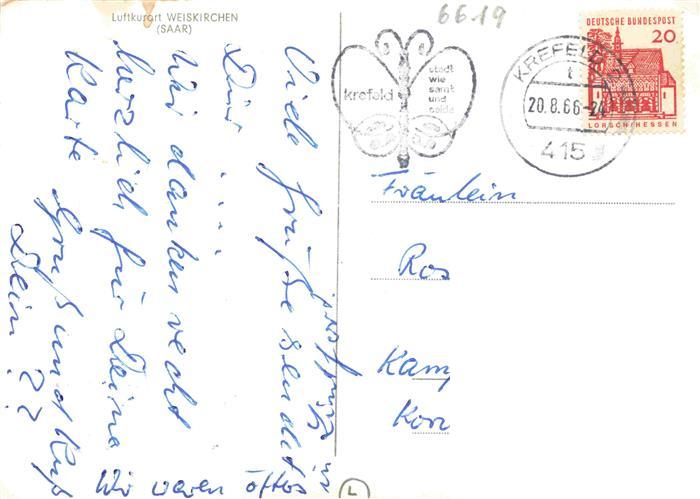 Luftkurort WEISKIRCHEN
(SAAR)
66.19
krefeld
stadt
wie
samt
und
seide
KREFELD
t
20.8.66-24
415
DEUTSCHE BUNDESPOST
20
LORSCH/HESSEN
Viele Grüße sendet
Dir . . .
Wir danken recht
herzlich für Deine
Karte Gruß und Kuß
Dein ? ?
Wir waren öfters
in
Fräulein
Ros
Kam
Kor
L